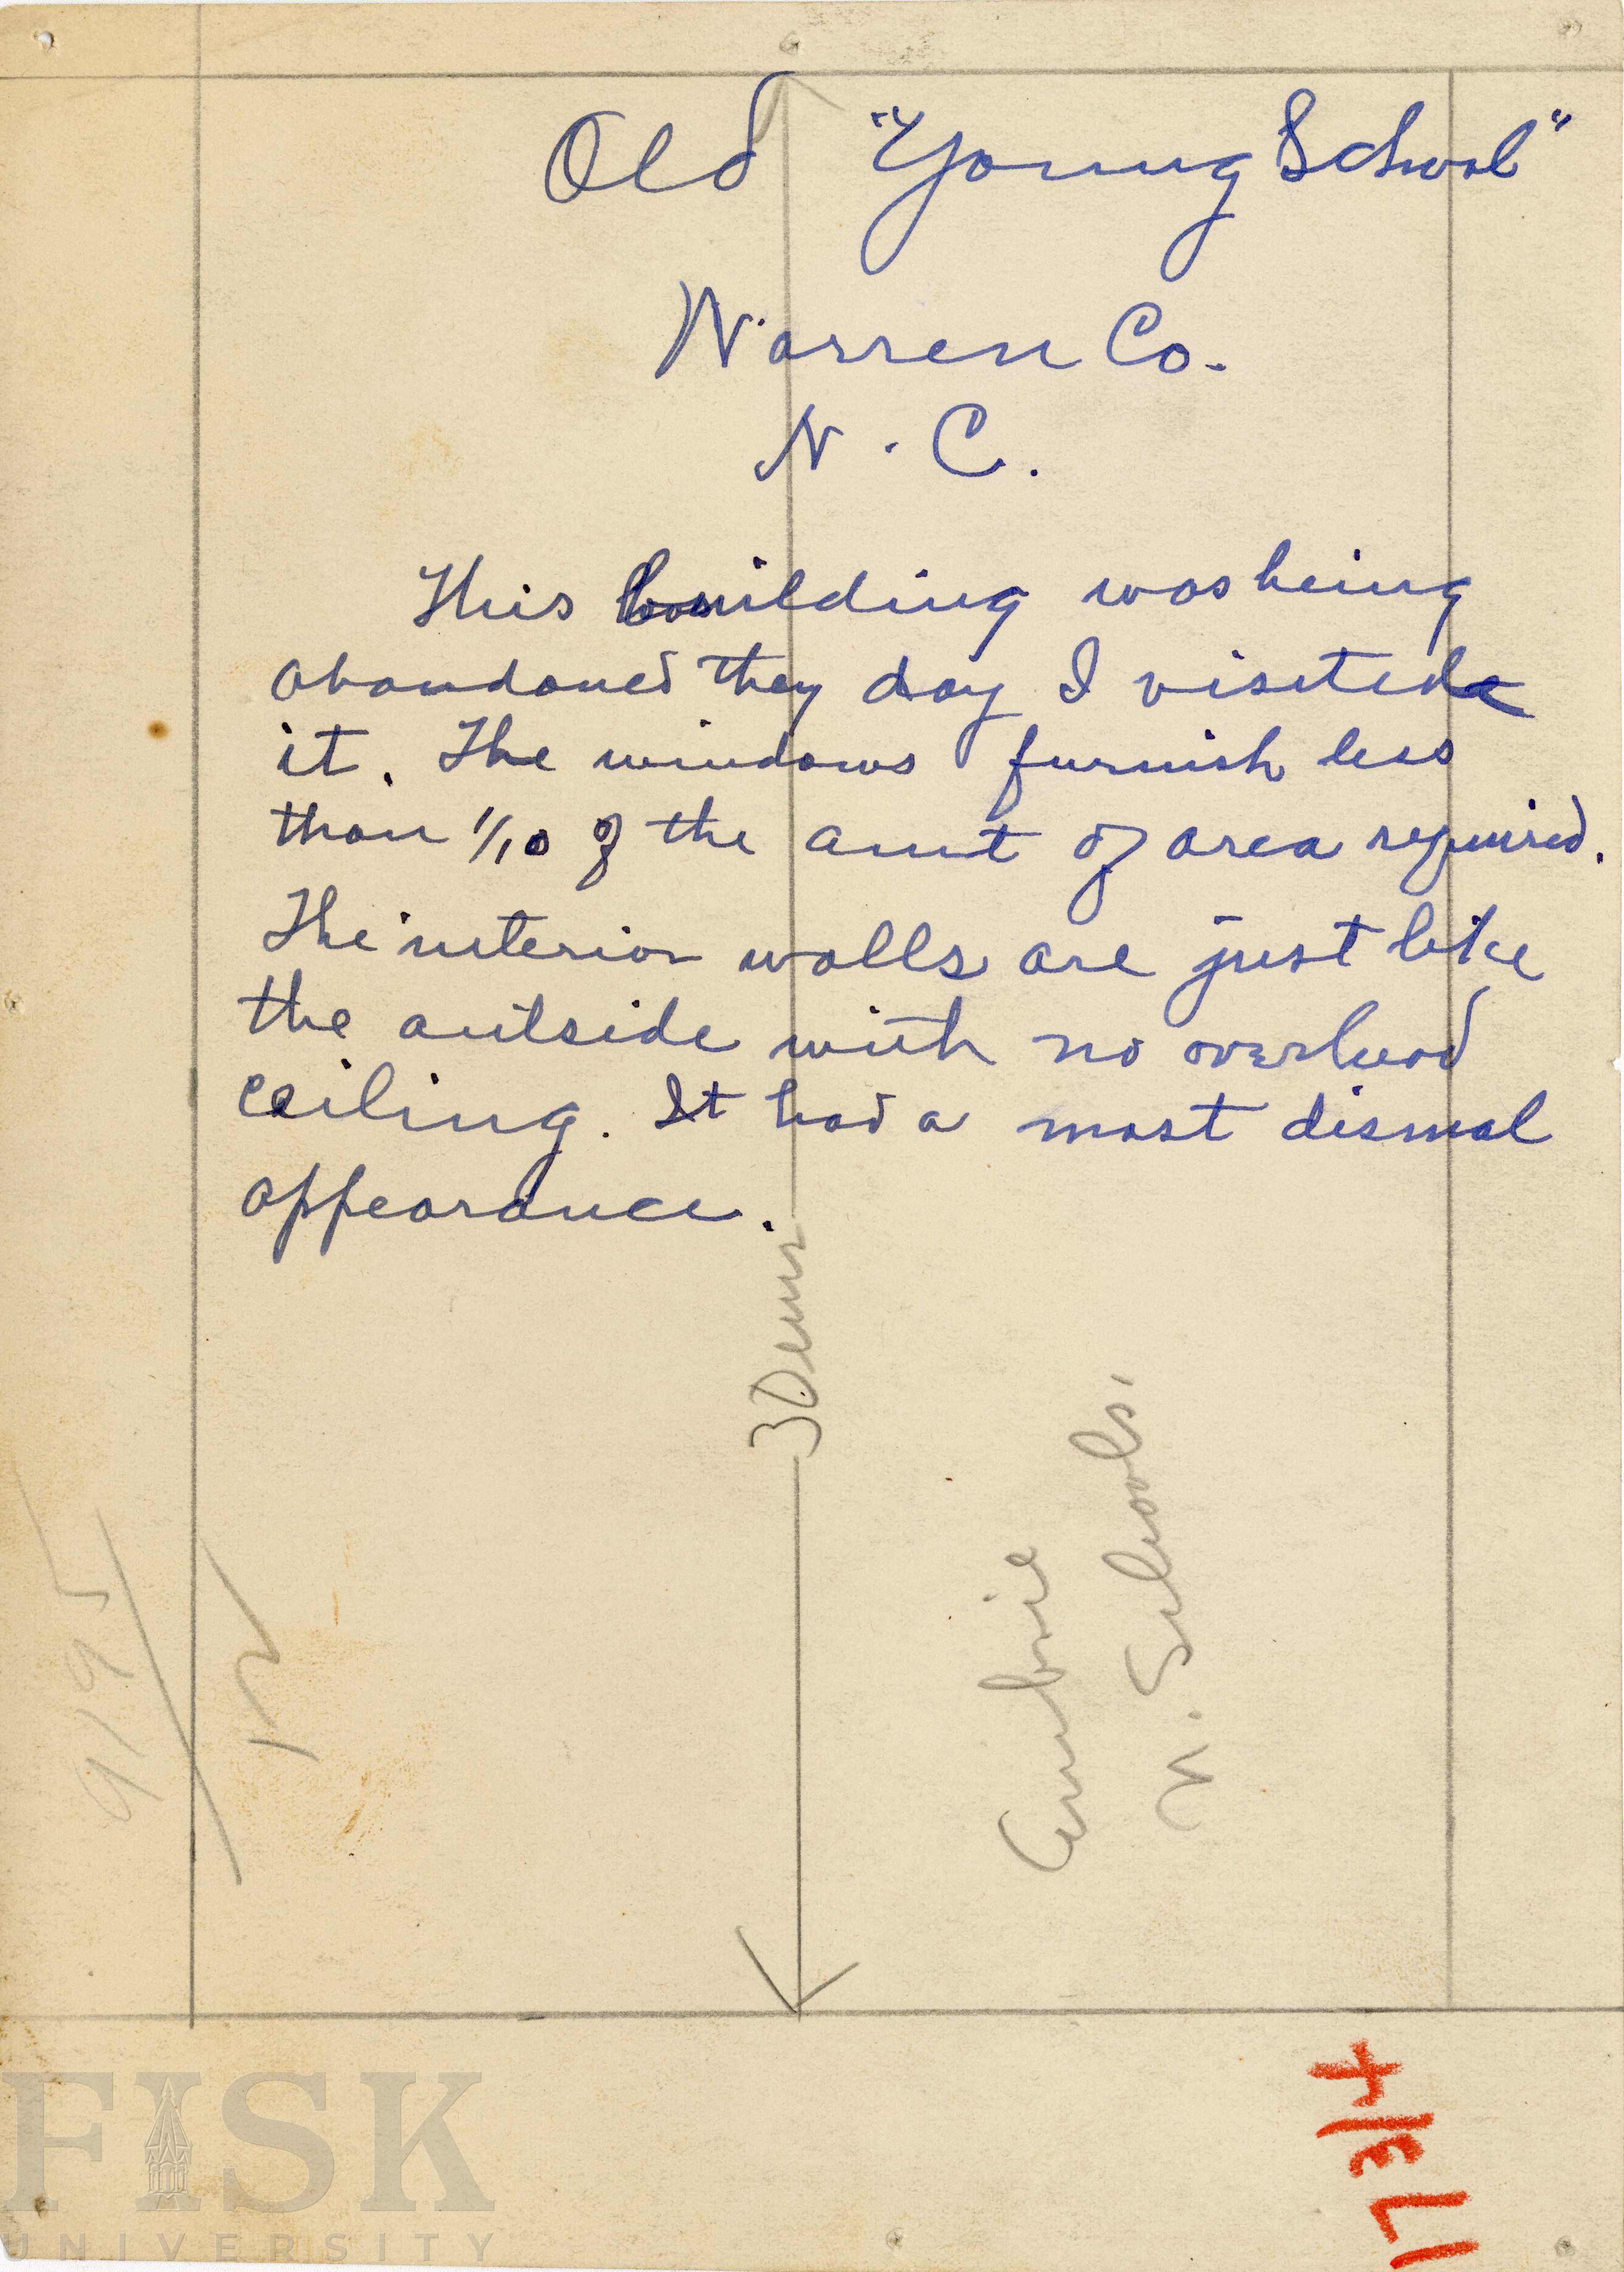 Old "Young School"
Warren Co.
N. C.
This building was being
abandoned they day I visited
it. The windows furnish less
than 1/10 of the amt of area required.
The interior walls are just like
the outside with no overhead
ceiling. It had a most dismal
appearance.
30ems
N. Schools.
9195
12
FISK
UNIVERSITY